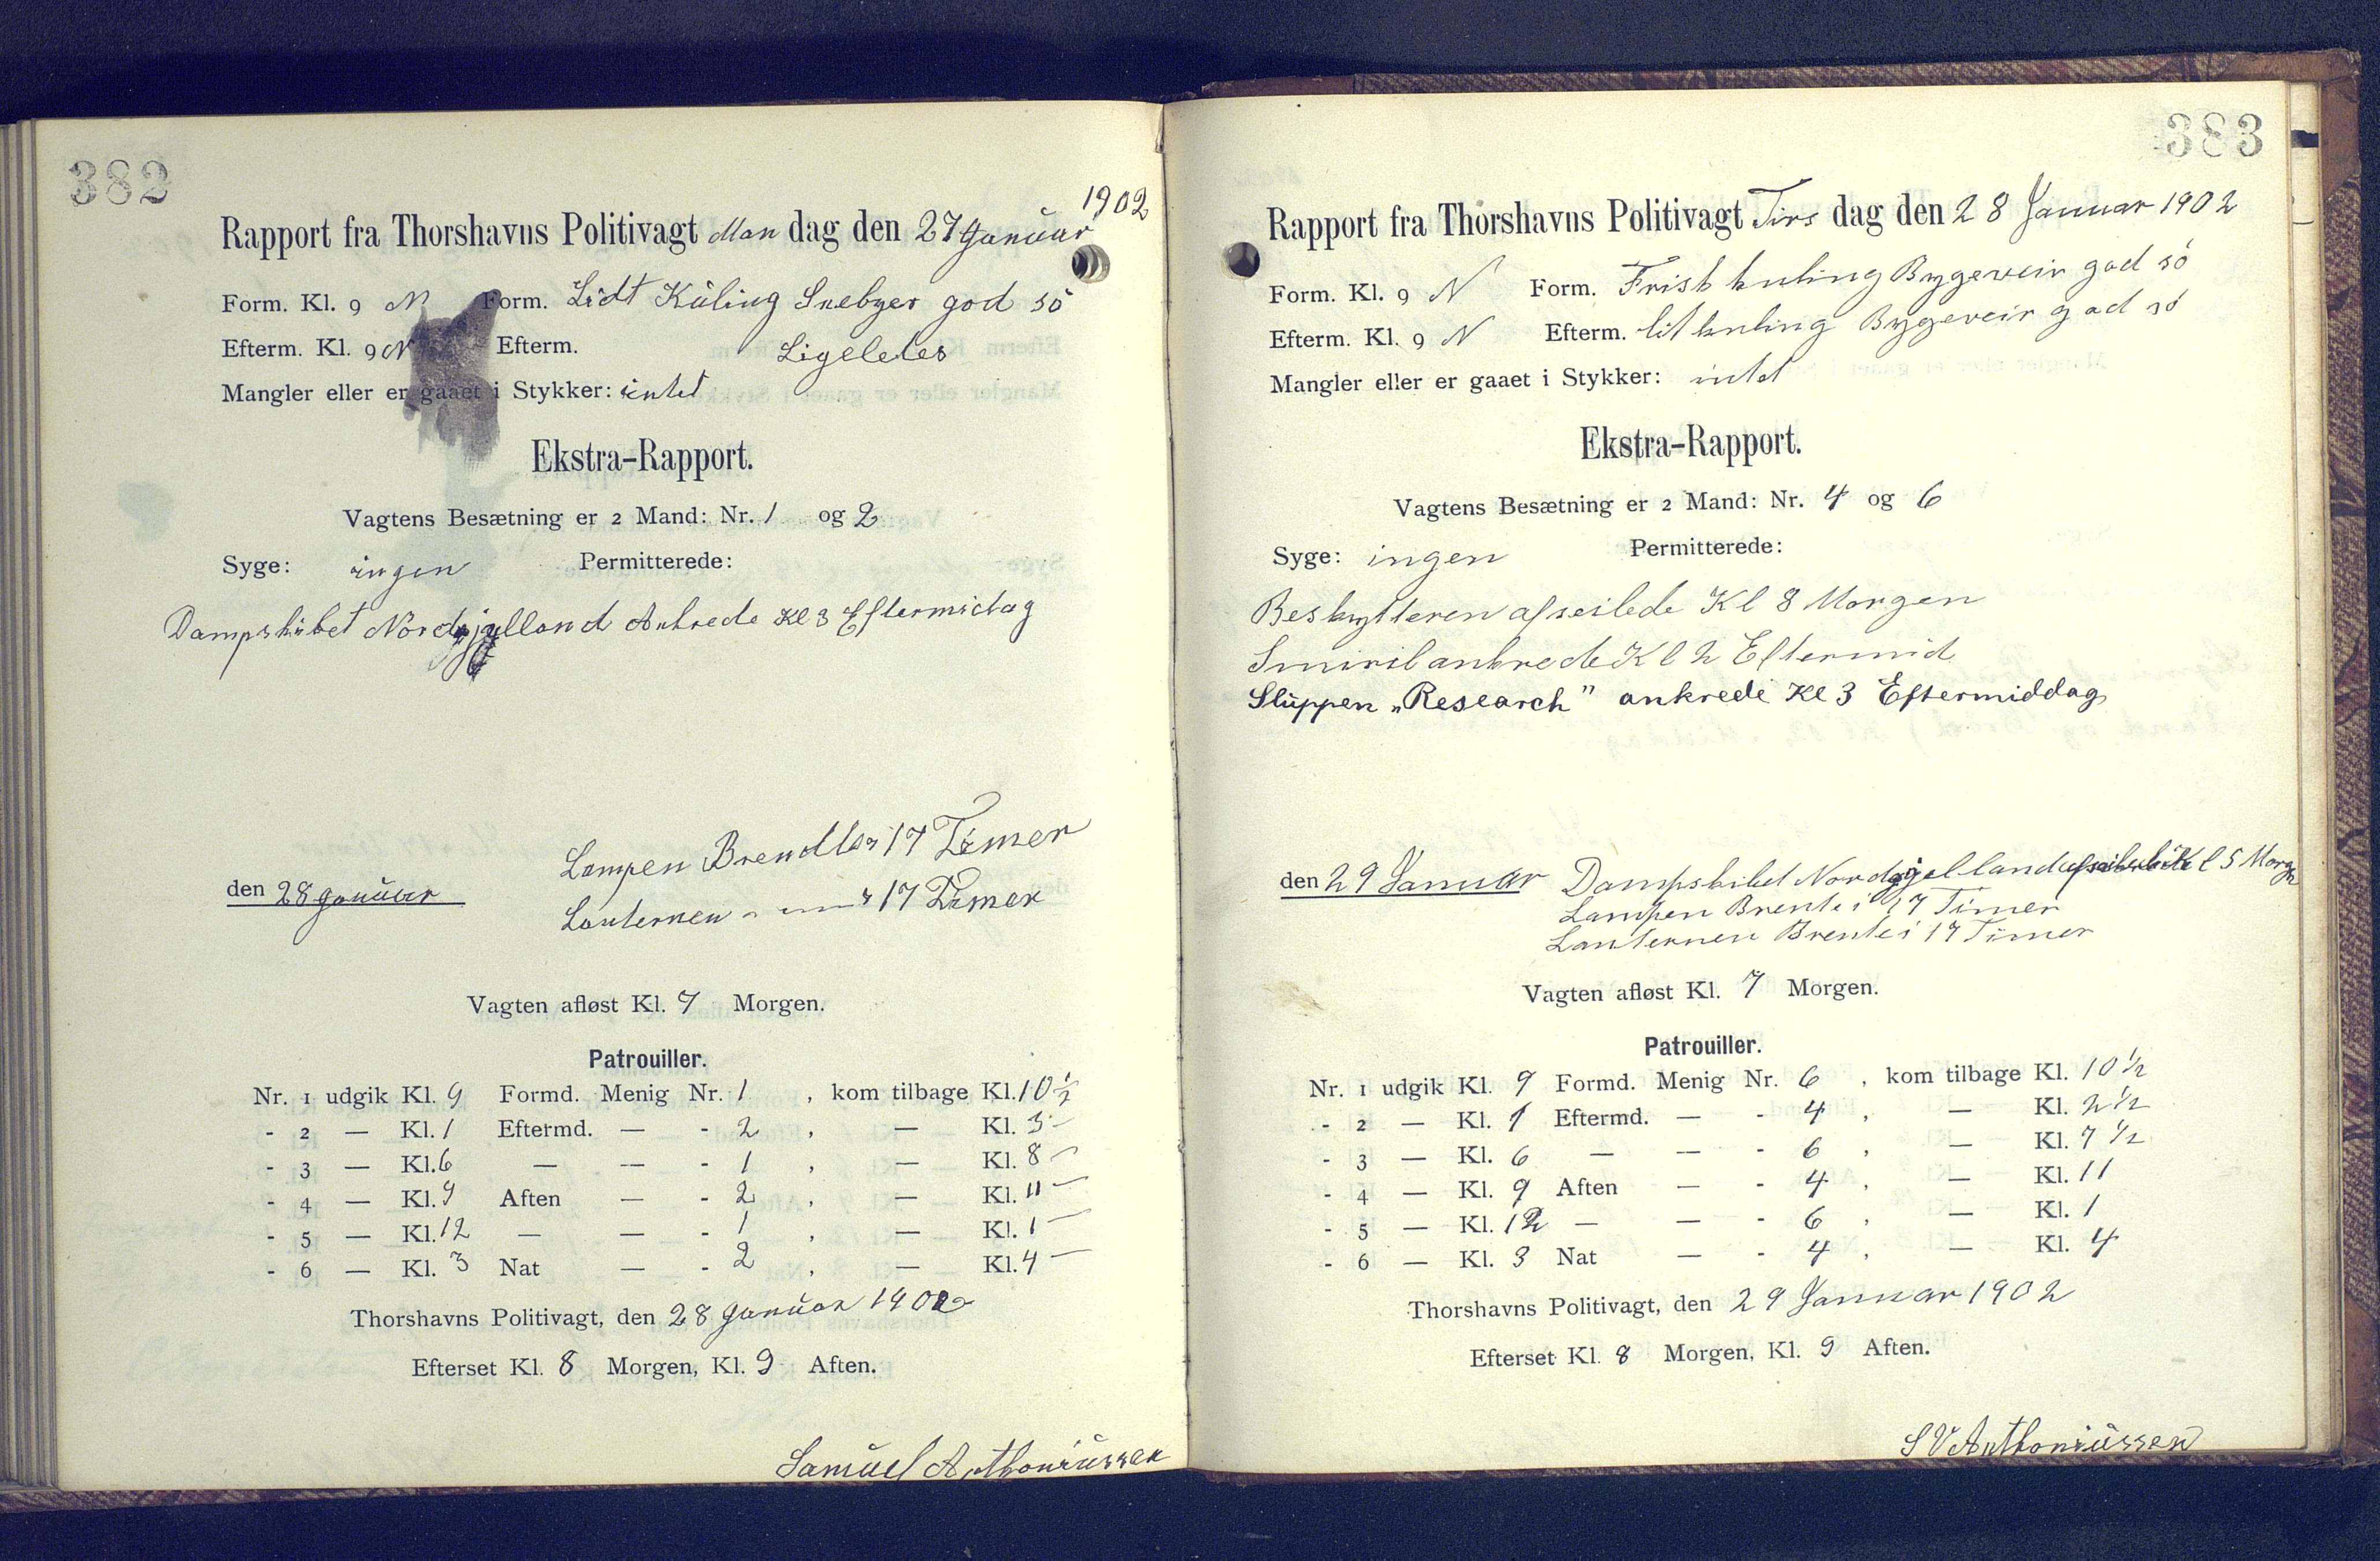 382
Rapport fra Thorshavns Politivagt Man dag den 27 Januar 1902
Form. Kl. 9 N Form. Lidt Kuling Snebyer god sö
Efterm. Kl. 9 N Efterm. Ligeledes
Mangler eller er gaaet i Stykker: intet
Ekstra-Rapport.
Vagtens Besætning er 2 Mand: Nr. 1 og 2
Syge: ingen Permitterede:
Dampskibet Nordsjælland Ankrede Kl 3 Eftermidag
Lampen Brendte i 17 Timer
den 28 Januar
Lanternen - — " 17 Timer
Vagten afløst Kl. 7 Morgen.
Patrouiller.
Nr. 1 udgik Kl. 9 Formd. Menig Nr. 1 , kom tilbage Kl. 10 ½
- 2 — Kl. 1 Eftermd. — - 2 , — Kl. 3 -
- 3 — Kl. 6 — — - 1 , — Kl. 8 -
- 4 — Kl. 9 Aften — - 2 , — Kl. 11 -
- 5 — Kl. 12 — — - 1 , — Kl. 1 -
- 6 — Kl. 3 Nat — - 2 , — Kl. 4 -
Thorshavns Politivagt, den 28 Januar 1902
Efterset Kl. 8 Morgen, Kl. 9 Aften.
Samuel Anthoniussen
383
Rapport fra Thorshavns Politivagt Tirs dag den 28 Januar 1902
Form. Kl. 9 N Form. Frisk kuling Bygeveir god sö
Efterm. Kl. 9 N Efterm. lit kuling Bygeveir god sö
Mangler eller er gaaet i Stykker: intet
Ekstra-Rapport.
Vagtens Besætning er 2 Mand: Nr. 4 og 6
Syge: ingen Permitterede:
Beskytteren afseilede Kl 8 Morgen
Smiril ankrede Kl 2 Eftermid
Sluppen „Research" ankrede Kl 3 Eftermiddag
den 29 Januar Dampskibet Nordsjælland Kl 5 Morgn
Lampen Brente i 17 Timer
Lanternen Brente i 17 Timer
Vagten afløst Kl. 7 Morgen.
Patrouiller.
Nr. 1 udgik Kl. 9 Formd. Menig Nr. 6 , kom tilbage Kl. 10 ½
- 2 — Kl. 1 Eftermd. — - 4 , — Kl. 2 ½
- 3 — Kl. 6 — — - 6 , — Kl. 7 ½
- 4 — Kl. 9 Aften — - 4 , — Kl. 11
- 5 — Kl. 12 — — - 6 , — Kl. 1
- 6 — Kl. 3 Nat — - 4 , — Kl. 4
Thorshavns Politivagt, den 29 Januar 1902
Efterset Kl. 8 Morgen, Kl. 9 Aften.
S V Anthoniussen